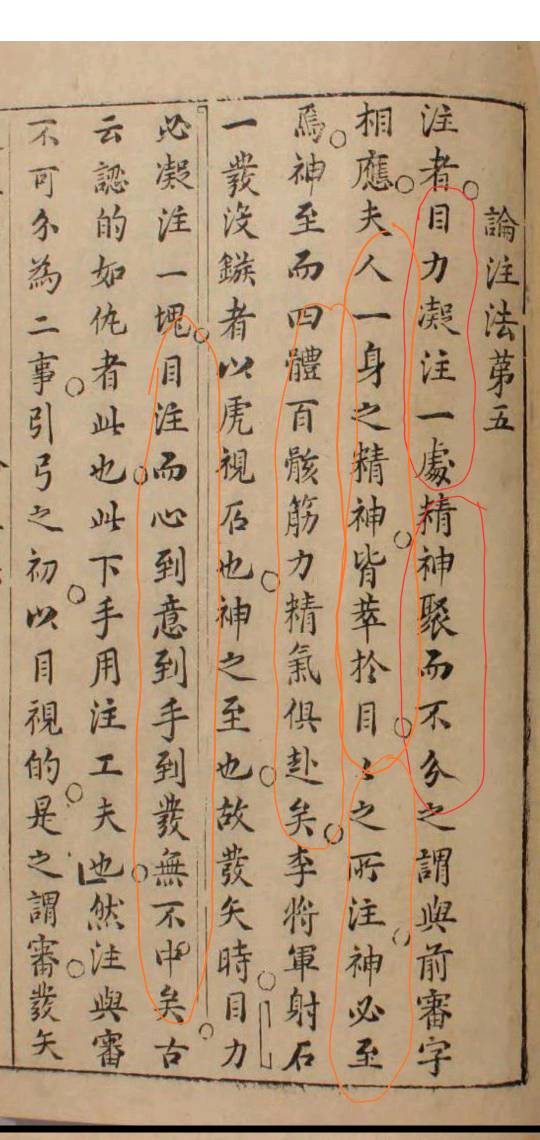 論注法第五
注者目力凝注一處精神聚而不分之謂與前審字
相應夫人一身之精神皆萃扵目〻之所注神必至
焉神至而四體百骸筋力精氣俱赴矣李將軍射石
一發没鏃者以虎視石也神之至也故發矢時目力
必凝注一塊目注而心到意到手到發無不中矣古
云認的如仇者此也此下手用注工夫也然注與審
不可分為二事引弓之初以目視的是之謂審發矢